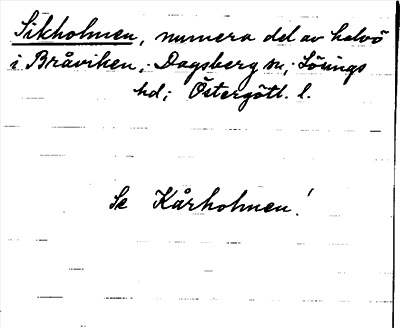 Sikholmen, numera del av halvö
i Bråviken, Dagsberg sn, Lösings
hd, Östergötl. l.
Se Kårholmen!